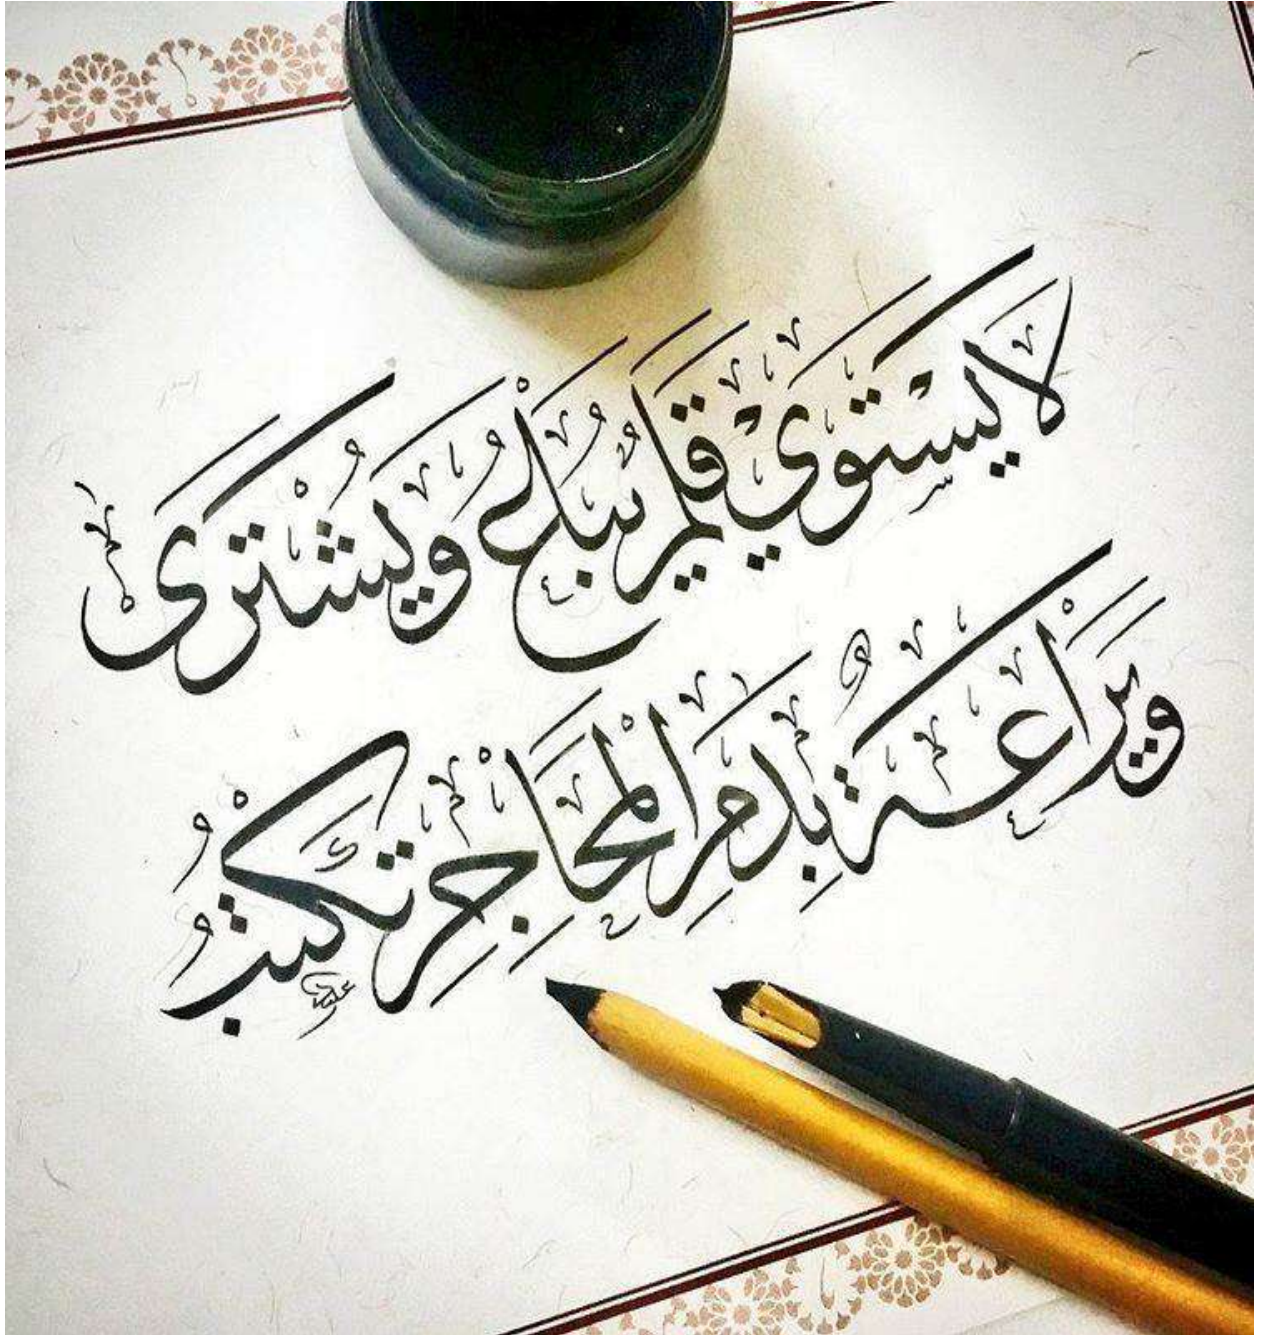 لا يستوي قلم يُباعُ ويُشْترى
ويَرَاعَةٌ بِدمِ الْمحَاجِرِ تكْتبُ